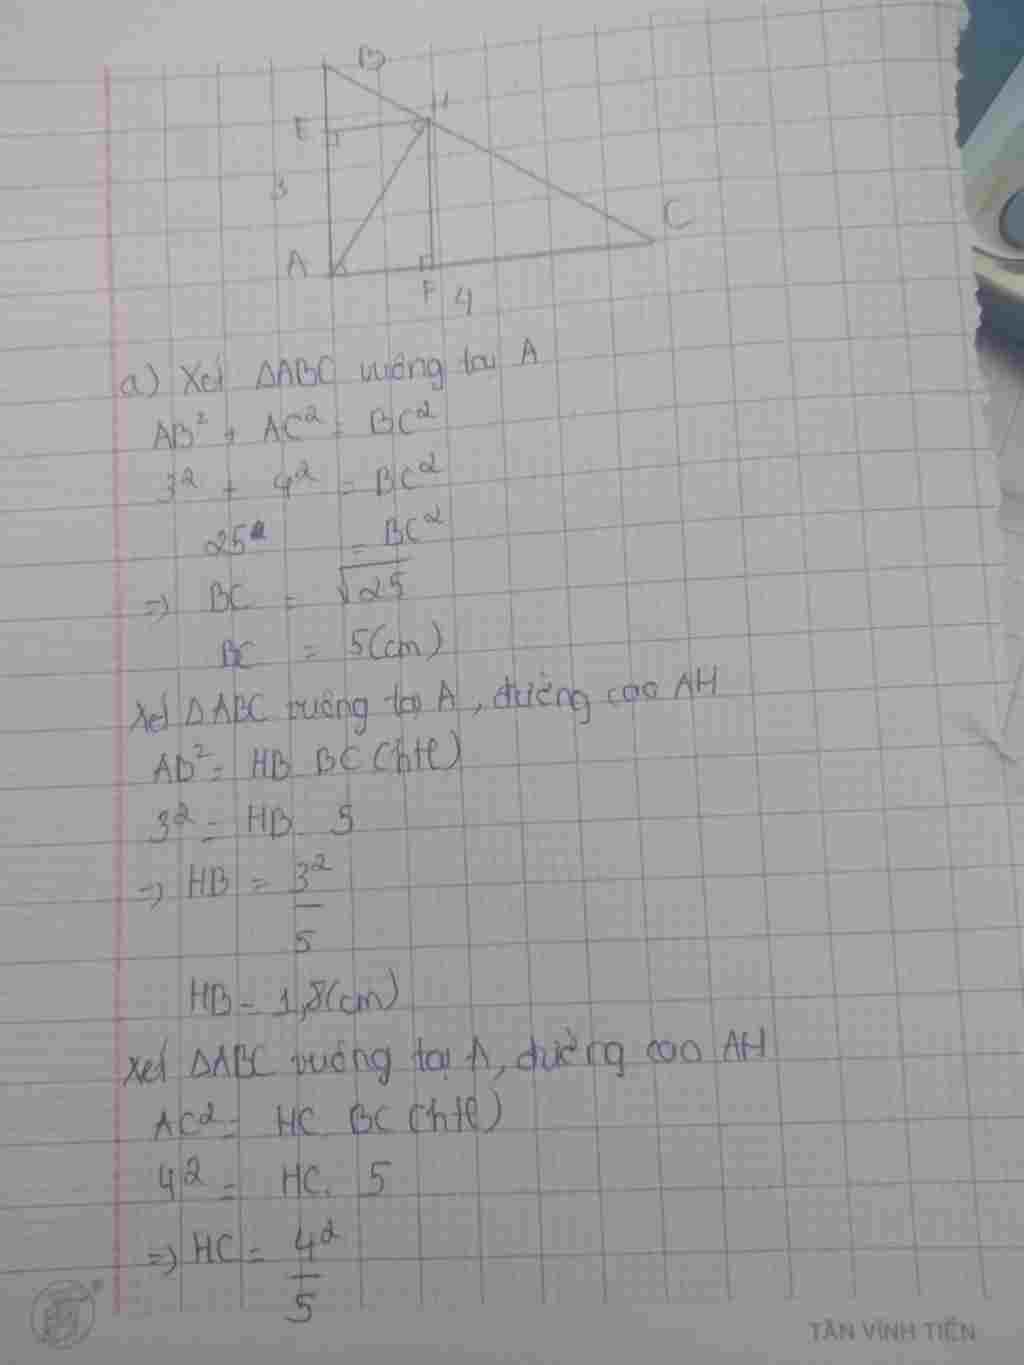 B
H
E
3
A
C
F
4
a) Xét ΔABC vuông tại A
AB² + AC² = BC²
3² + 4² = BC²
25 = BC²
=> BC = √25
BC = 5(cm)
Xét ΔABC vuông tại A, đường cao AH
AB² = HB. BC (htl)
3² = HB. 5
=> HB = 3²/5
HB = 1,8(cm)
Xét ΔABC vuông tại A, đường cao AH
AC² = HC. BC (htl)
4² = HC. 5
=> HC = 4²/5
TÂN VĨNH TIẾN